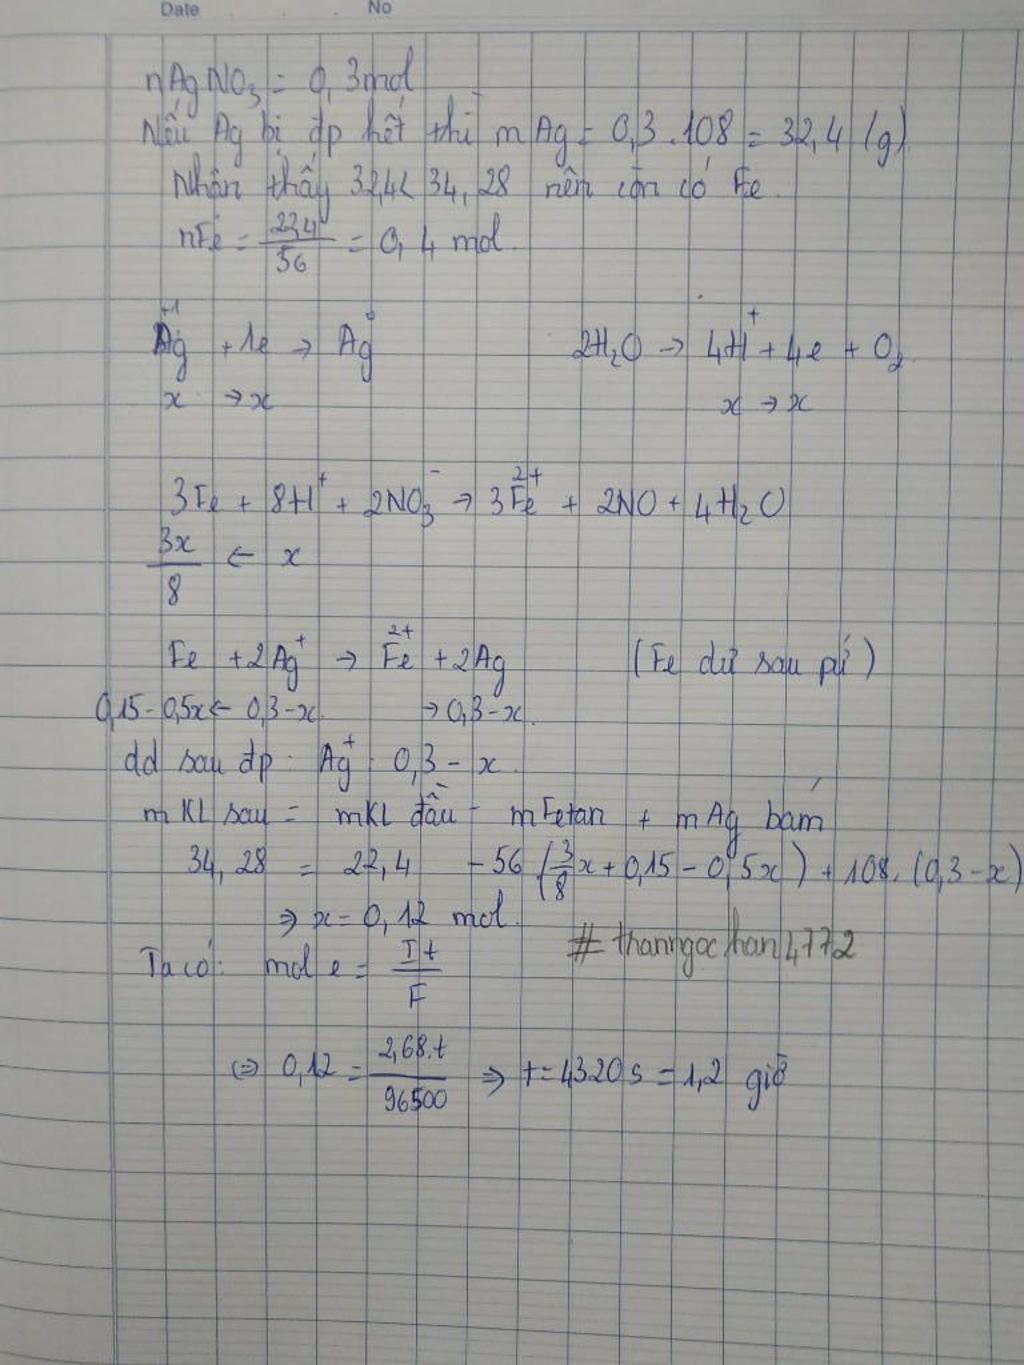 Date No
nAgNO₃ = 0,3mol
Nếu Ag bị đp hết thì mAg = 0,3.108 = 32,4 (g).
Nhận thấy 32,4 < 34,28 nên còn có Fe.
nFe = 22,4/56 = 0,4 mol.
Ag⁺¹ + 1e → Ag⁰ 2H₂O → 4H⁺ + 4e + O₂
x → x x → x
3Fe + 8H⁺ + 2NO₃⁻ → 3Fe²⁺ + 2NO + 4H₂O
3x/8 ← x
Fe + 2Ag⁺ → Fe²⁺ + 2Ag (Fe dư sau pứ)
0,15-0,5x ← 0,3-x. → 0,3-x.
dd sau đp: Ag⁺: 0,3 - x.
mKL sau = mKL đầu - mFetan + mAg bám
34,28 = 22,4 - 56 (3/8x + 0,15 - 0,5x) + 108. (0,3-x)
⇒ x = 0,12 mol.
# thanngochan4772
Ta có: mol e = It/F
⇔ 0,12 = 2,68.t/96500 ⇒ t = 4320s = 1,2 giờ